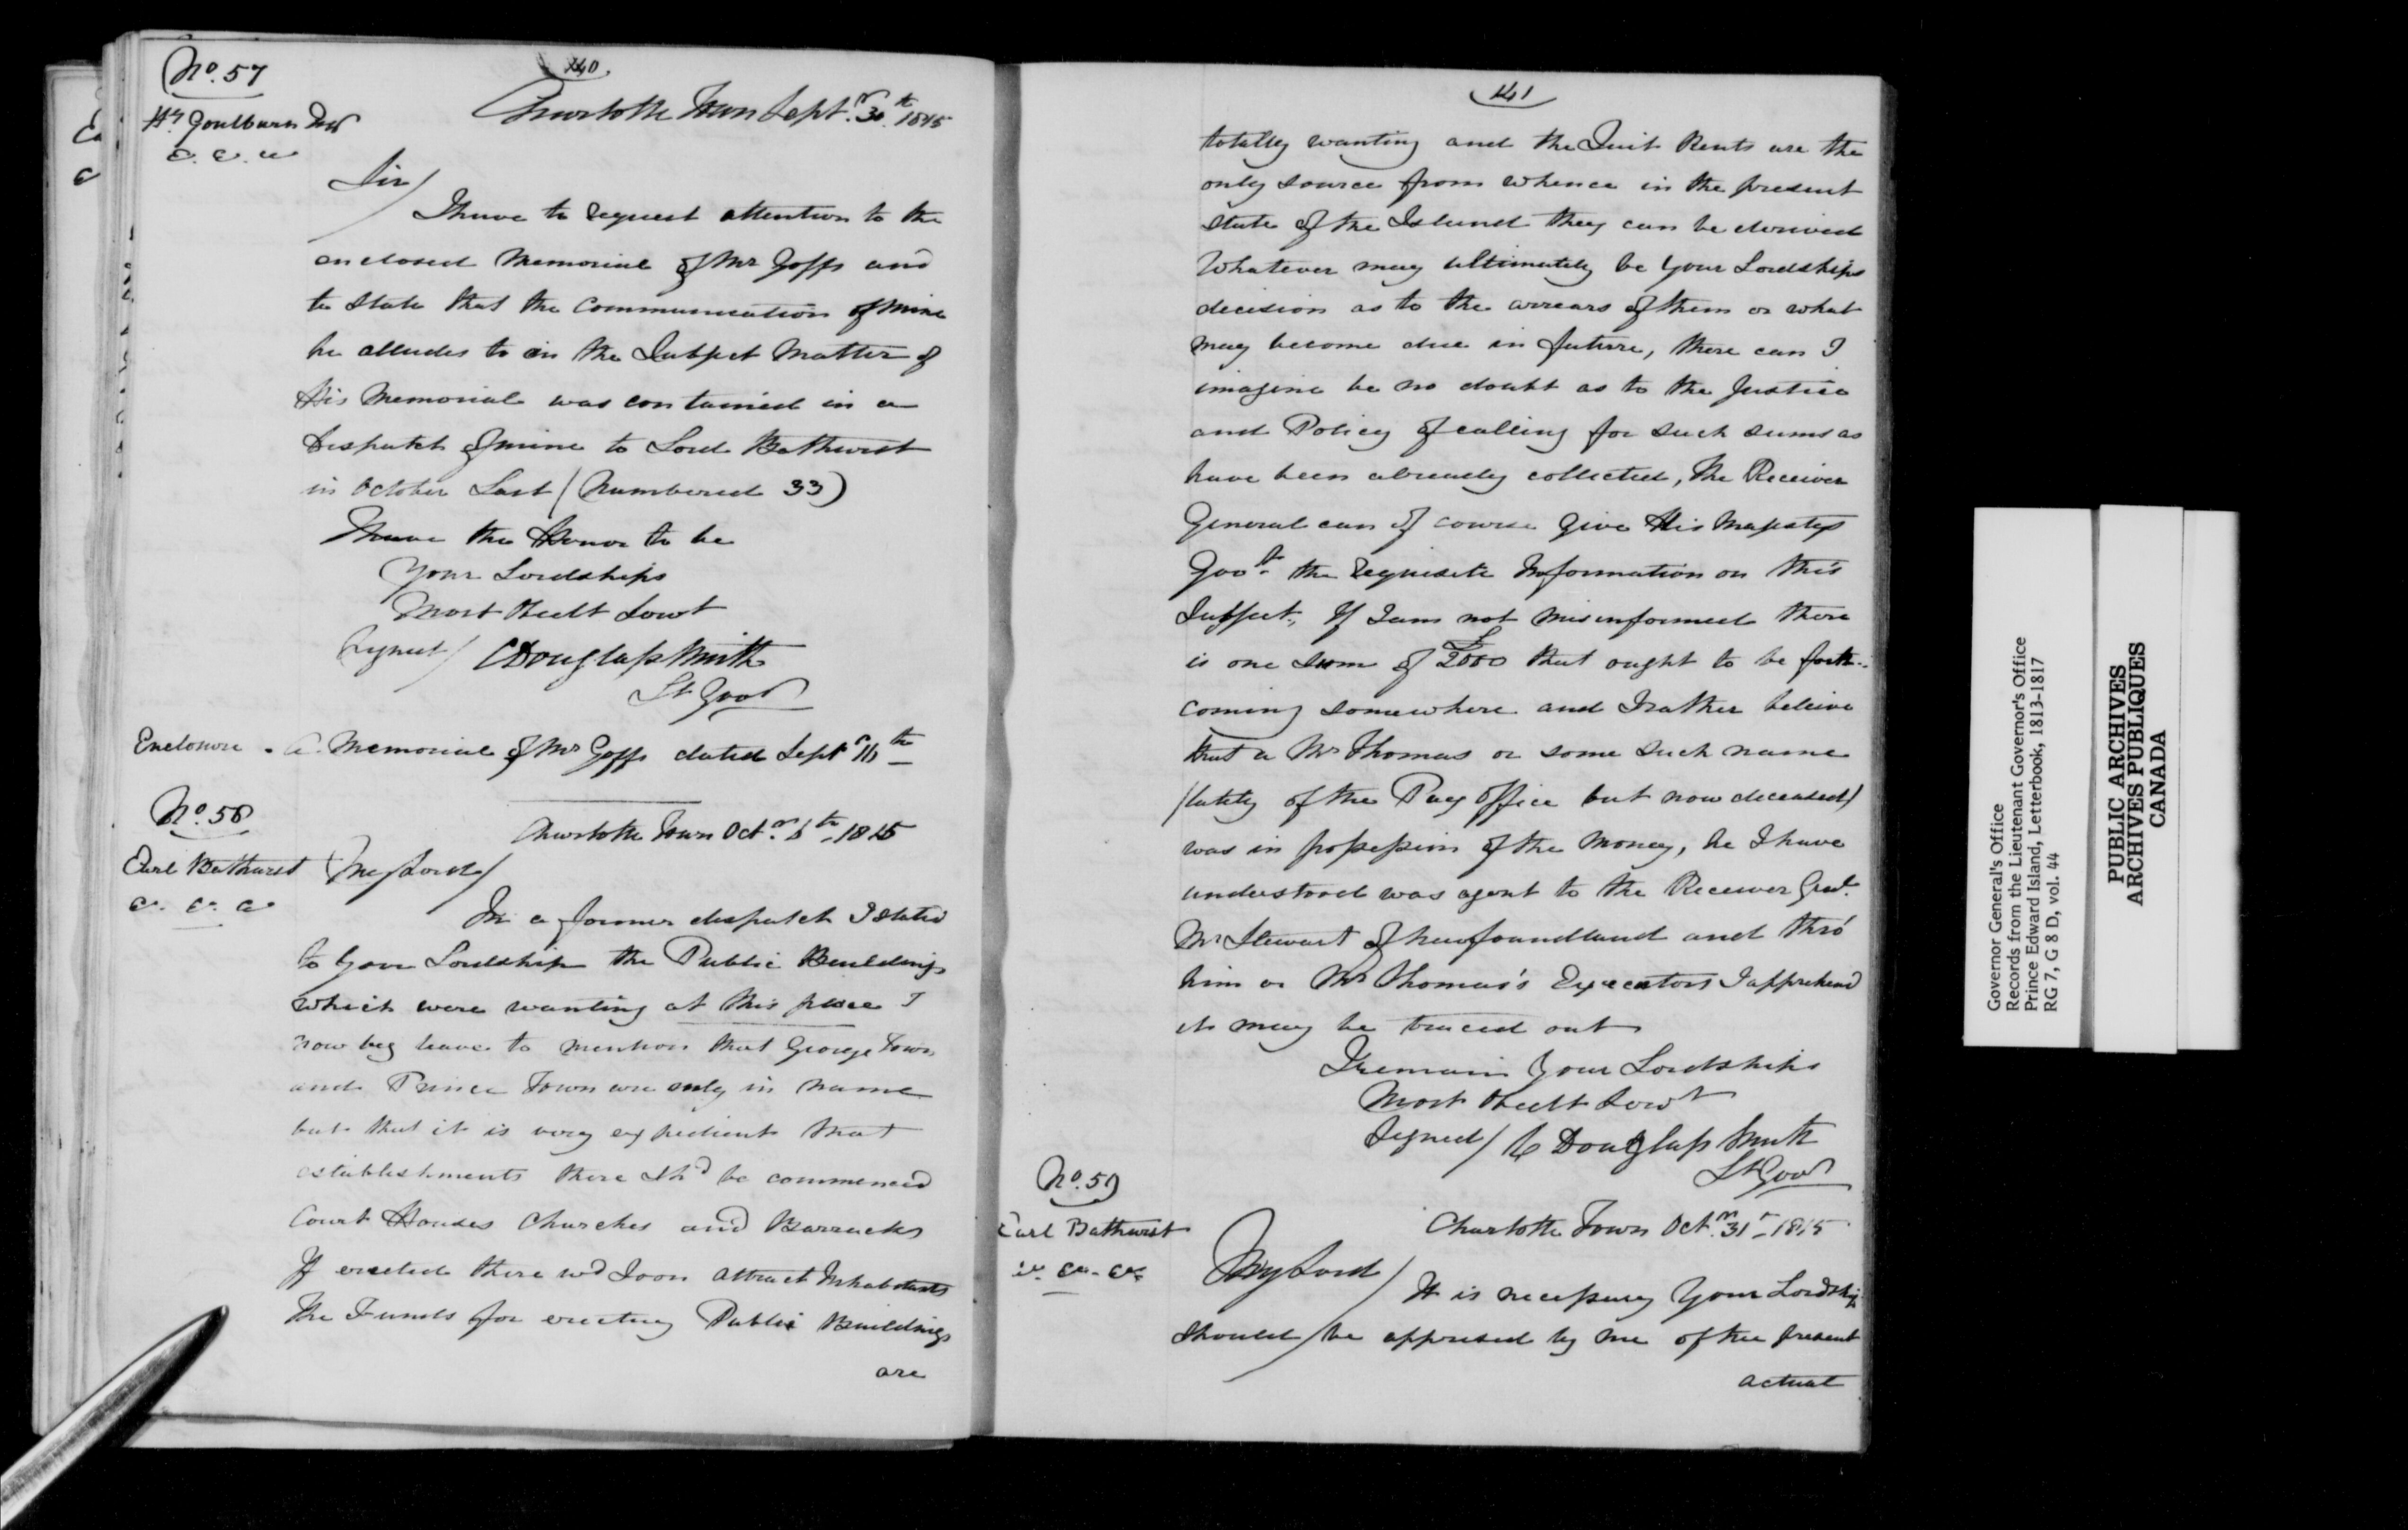 40
No. 57
Hy Goulburn Esqr
&. &. &
Charlotte Town Septr. 30th 1815
Sir/
I have to request attention to the
enclosed Memorial of Mr Goffs and
to state that the Communication of mine
he alludes to in the Subject Matter of
His Memorial was contained in a
Dispatch of mine to Lord Bathurst
in October Last (Numbered 33)
I have the Honor to be
Your Lordships
Most Obedt Servt
Signed/ C Douglass Smith
Lt Govr
Enclosure. A Memorial of Mr Goffs dated Septr 11th
No. 58
Charlotte Town Octr. 6th 1815
Earl Bathurst
&. &. &
My Lord/
In a former dispatch I stated
to Your Lordship the Public Buildings
which were wanting at this place I
now beg leave to mention that George Town
and Prince Town are only in name
but that it is very expedient that
establishments there shd be commenced
Court Houses Churches and Barracks
If erected there wd Soon attract Inhabitants
The Funds for erecting Public Buildings
are
41
totally wanting and the Quit Rents are the
only source from whence in the present
state of the Island they can be derived
Whatever may ultimately be Your Lordships
decision as to the arrears of them or what
may become due in future, there can I
imagine be no doubt as to the Justice
and Policy of calling for such sums as
have been already collected, The Receiver
General can of course give His Majestys
Govt. the requisite Information on this
Subject, If I am not misinformed there
is one sum of £2000 that ought to be forth-
coming somewhere and I rather beleive
that a Mr Thomas or some such name
/lately of the Pay Office but now deceased/
was in possession of the Money, he I have
understood was agent to the Receiver Genl.
Mr Stewart of Newfoundland and thro'
him or Mr Thomas's Executors I apprehend
it may be traced out
I remain Your Lordships
Most Obedt Servt
Signed/ C Douglass Smith
Lt Govr
No. 59
Charlotte Town Octr. 31st 1815
Earl Bathurst
&. &. &.
My Lord/
It is necessary Your Lordship
should be apprised by me of the present
actual
Governor General's Office
Records from the Lieutenant Governor's Office
Prince Edward Island, Letterbook, 1813-1817
RG 7, G 8 D, vol. 44
PUBLIC ARCHIVES
ARCHIVES PUBLIQUES
CANADA